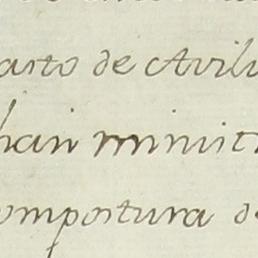 asto de Avilu
han minist
ompostura de